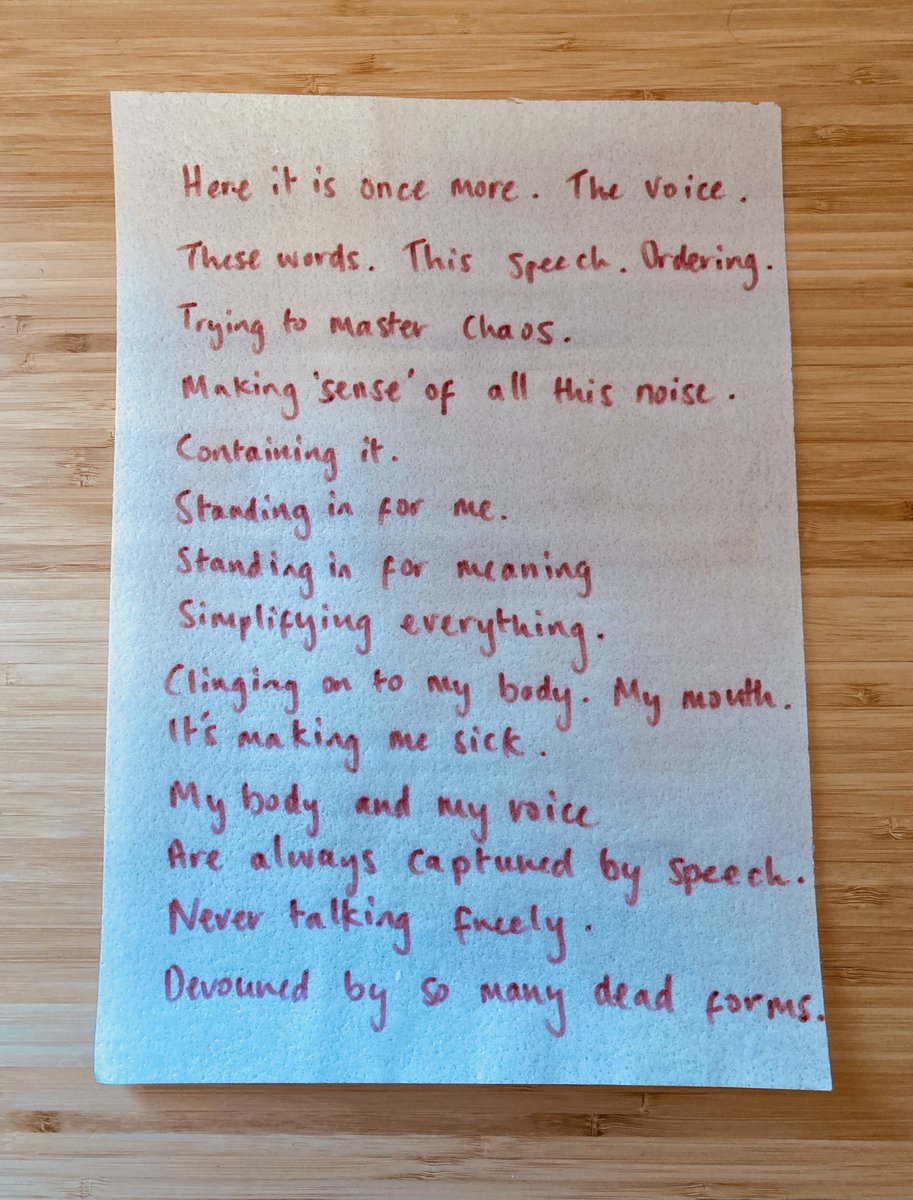 Here it is once more. The voice.
These words. This speech. Ordering.
Trying to master chaos.
Making 'sense' of all this noise.
Containing it.
Standing in for me.
Standing in for meaning
Simplifying everything.
Clinging on to my body. My mouth.
It's making me sick.
My body and my voice
Are always captured by speech.
Never talking freely.
Devoured by so many dead forms.